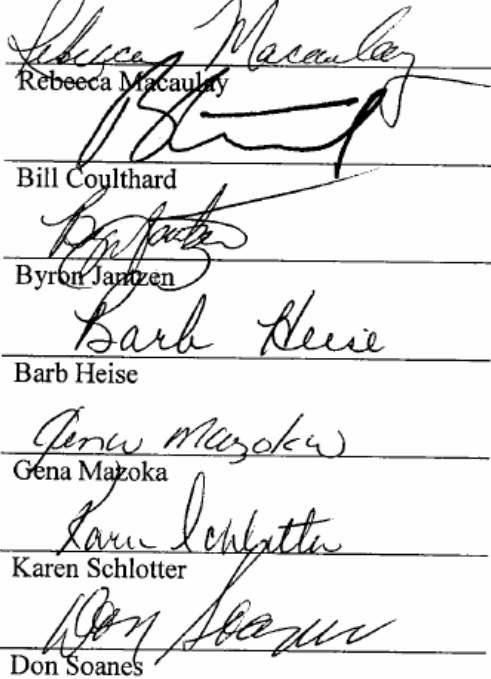 Rebecca Macaulay
Rebecca Macaulay
Bill Coulthard
Byron Jantzen
Byron Jantzen
Barb Heise
Barb Heise
Gena Mazoka
Gena Mazoka
Karen Schlotter
Karen Schlotter
Don Soanes
Don Soanes